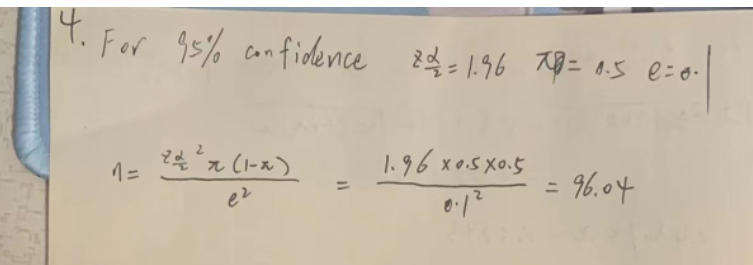 4. For 95% confidence zα/2 = 1.96 π = 0.5 e = 0.1
n = zα/2² π (1-π) / e² = 1.96 × 0.5 × 0.5 / 0.1² = 96.04